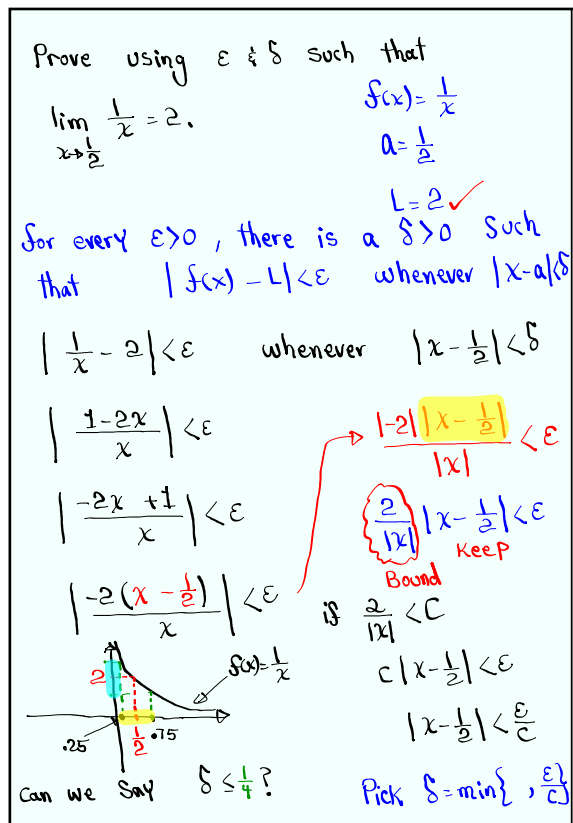 Prove using ε & δ such that
lim 1/x = 2.
x→1/2
f(x) = 1/x
a = 1/2
L = 2 ✓
for every ε>0, there is a δ>0 such
that |f(x) - L|<ε whenever |x-a|<δ
|1/x - 2|<ε whenever |x - 1/2|<δ
|(1-2x)/x|<ε
|(-2x +1)/x|<ε
|-2(x - 1/2)/x|<ε
|-2||x - 1/2|/|x| <ε
2/|x| |x - 1/2|<ε
Keep
Bound
if 2/|x| <C
C|x - 1/2|<ε
|x - 1/2|<ε/C
f(x)=1/x
2
.25 1/2 .75
can we say δ ≤ 1/4?
Pick δ = min{ , ε/C}